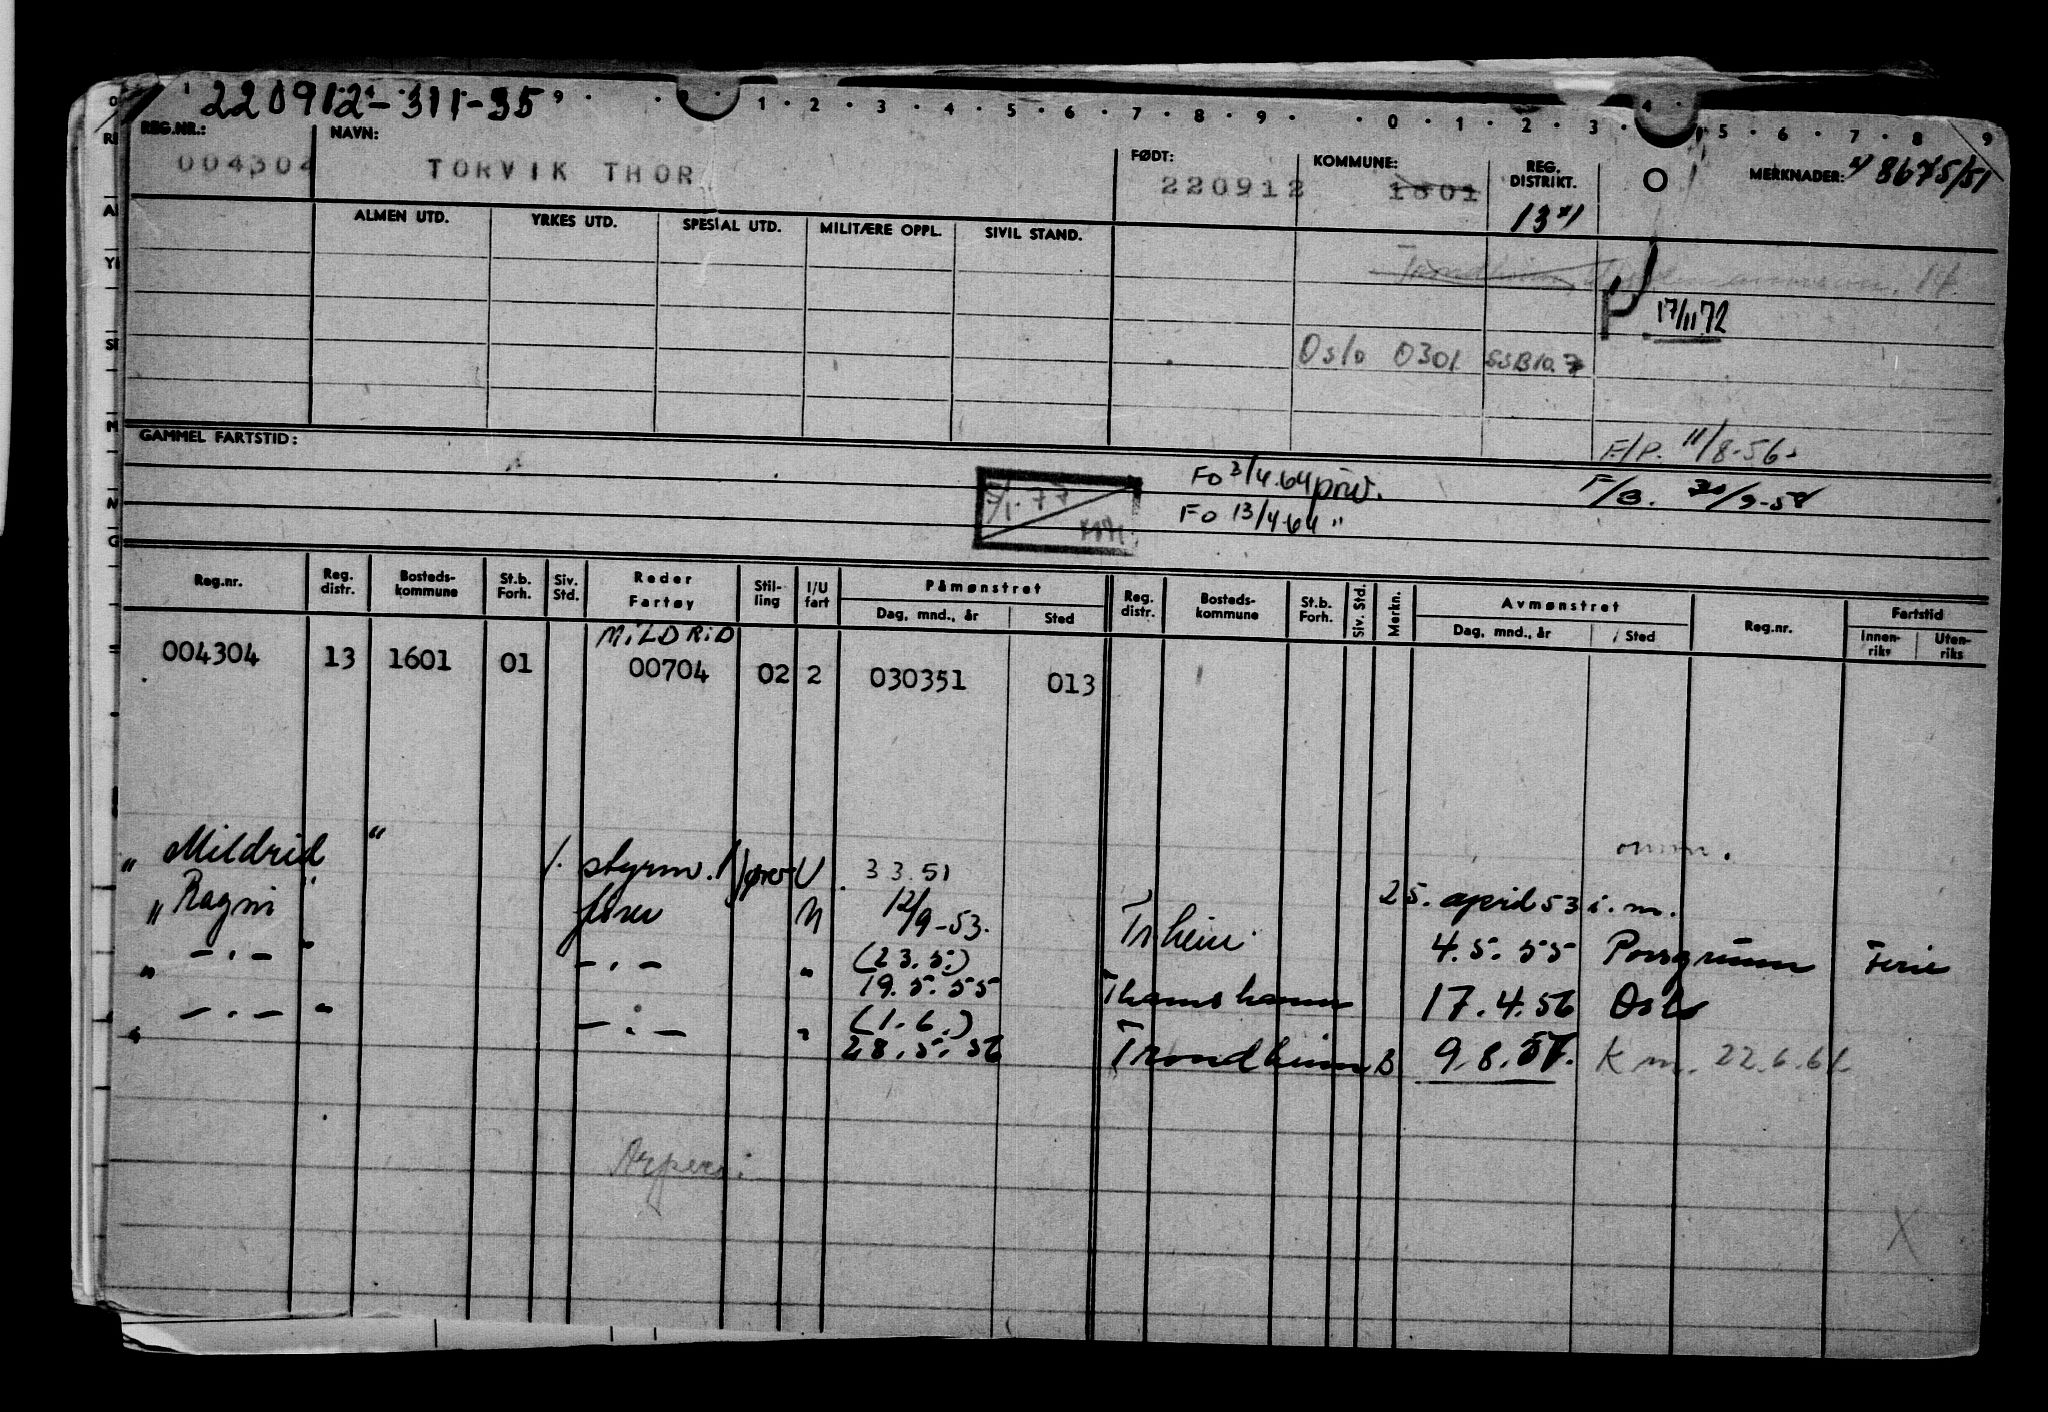 220912-311-35
REG.NR.: NAVN: FØDT: KOMMUNE: REG. DISTRIKT. MERKNADER: 8675/51
004304 TORVIK THOR 220912 1601 13
ALMEN UTD. YRKES UTD. SPESIAL UTD. MILITÆRE OPPL. SIVIL STAND.
Trondheim 14.
17/11 72
Oslo 0301
GAMMEL FARTSTID:
F/P. 11/8-56
Fo 3/4.64 priv.
F/B. 30/9-58
Fo 13/4-64 "
7/1-77
Reg.nr. Reg. distr. Bosteds-kommune St.b. Forh. Siv. Std. Reder Fartøy Stil-ling I/U fart Påmønstret Dag, mnd., år Sted Reg. distr. Bosteds-kommune St.b. Forh. Siv. Std. Merkn. Avmønstret Dag, mnd., år Sted Reg.nr. Fartstid Innen-riks Uten-riks
MILDRID
004304 13 1601 01 00704 02 2 030351 013
" Mildrid " 1. styrm. U 3 3.51
25. april 53 i.m.
" Ragni " fører 12/9-53. Tr.heim 4.5.55 Porsgrunn Ferie
" -.- " -.- " (23.5.) 19.5.55 Thamshamn 17.4.56 Oslo
" -.- " -.- " (1.6.) 28.5.56 Trondheim B 9.8.57.
X